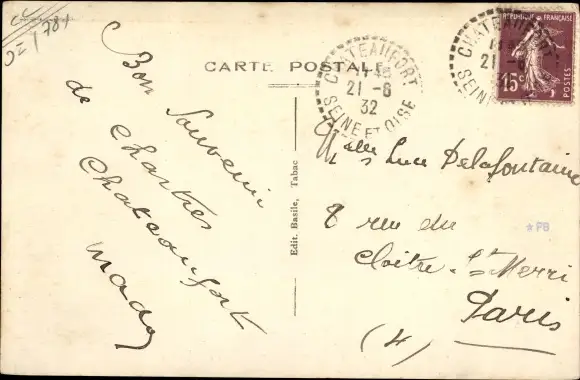 CARTE POSTALE
Bon
Souvenir
de Chartres
Chateaufort
Mady
Edit. Basile, Tabac
CHATEAUFORT
21-6
32
SEINE ET OISE
RÉPUBLIQUE FRANÇAISE
15c
POSTES
CHATEAUFORT
21-6
32
Luce Delafontaine
8 rue du
Cloitre St Merri
Paris
(4)
*PB